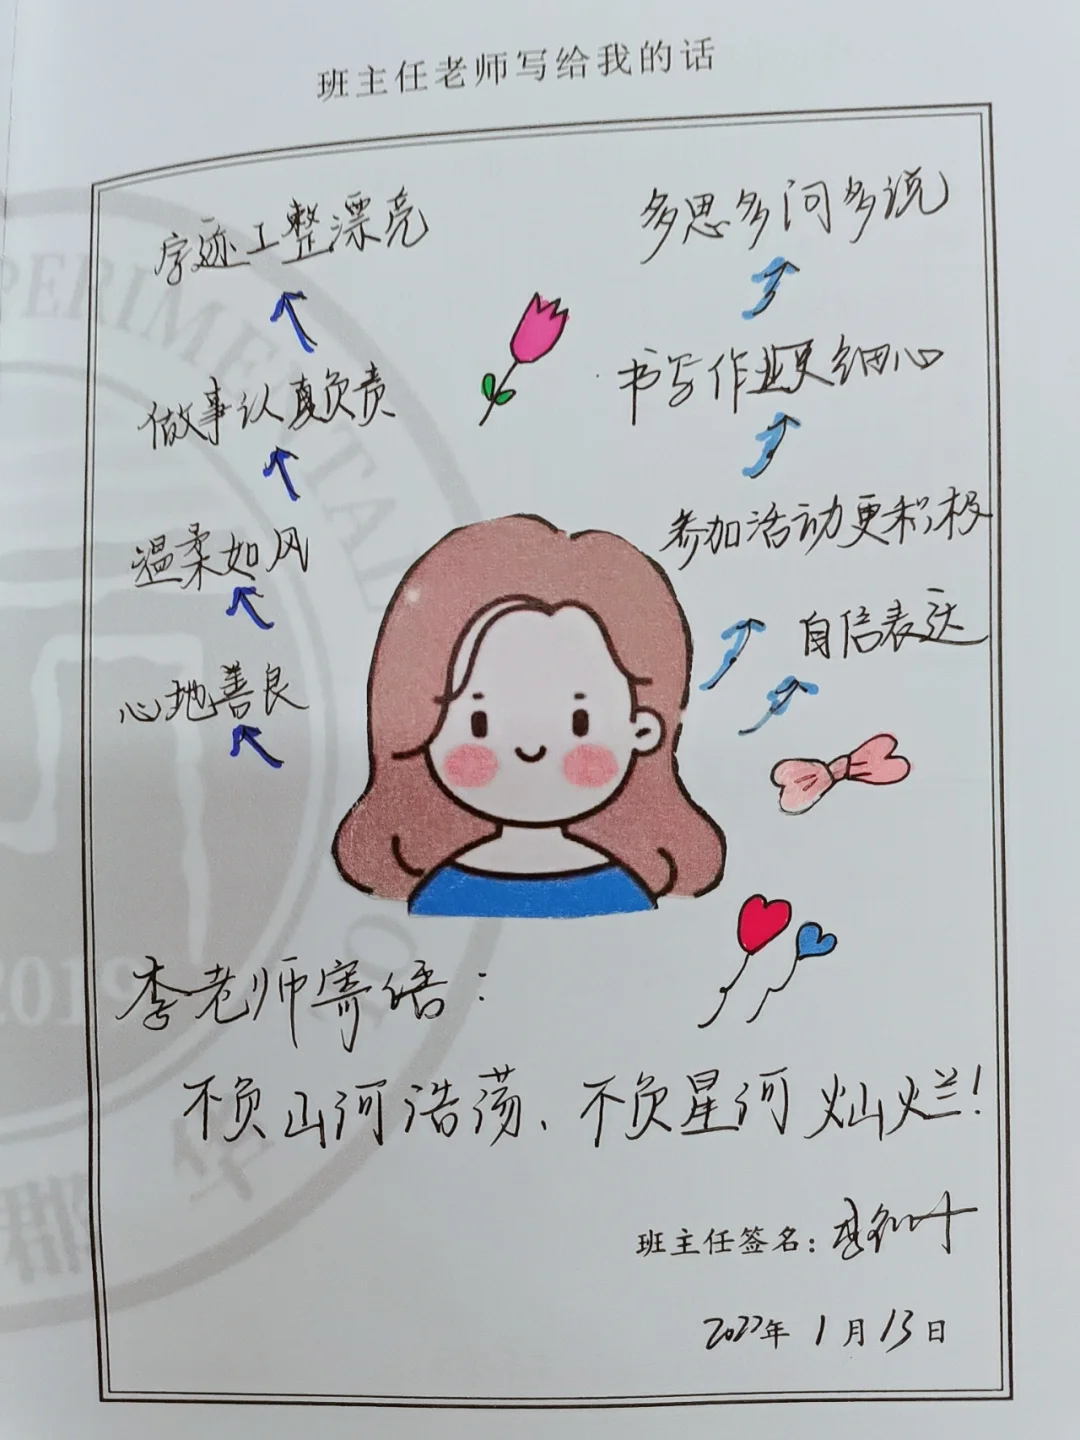 班主任老师写给我的话
字迹工整漂亮
做事认真负责
温柔如风
心地善良
多思多问多说
书写作业更细心
参加活动更积极
自信表达
李老师寄语:
不负山河浩荡、不负星河灿烂!
班主任签名:
2022年 1月13日
PERIMENTAL
2012
华
群